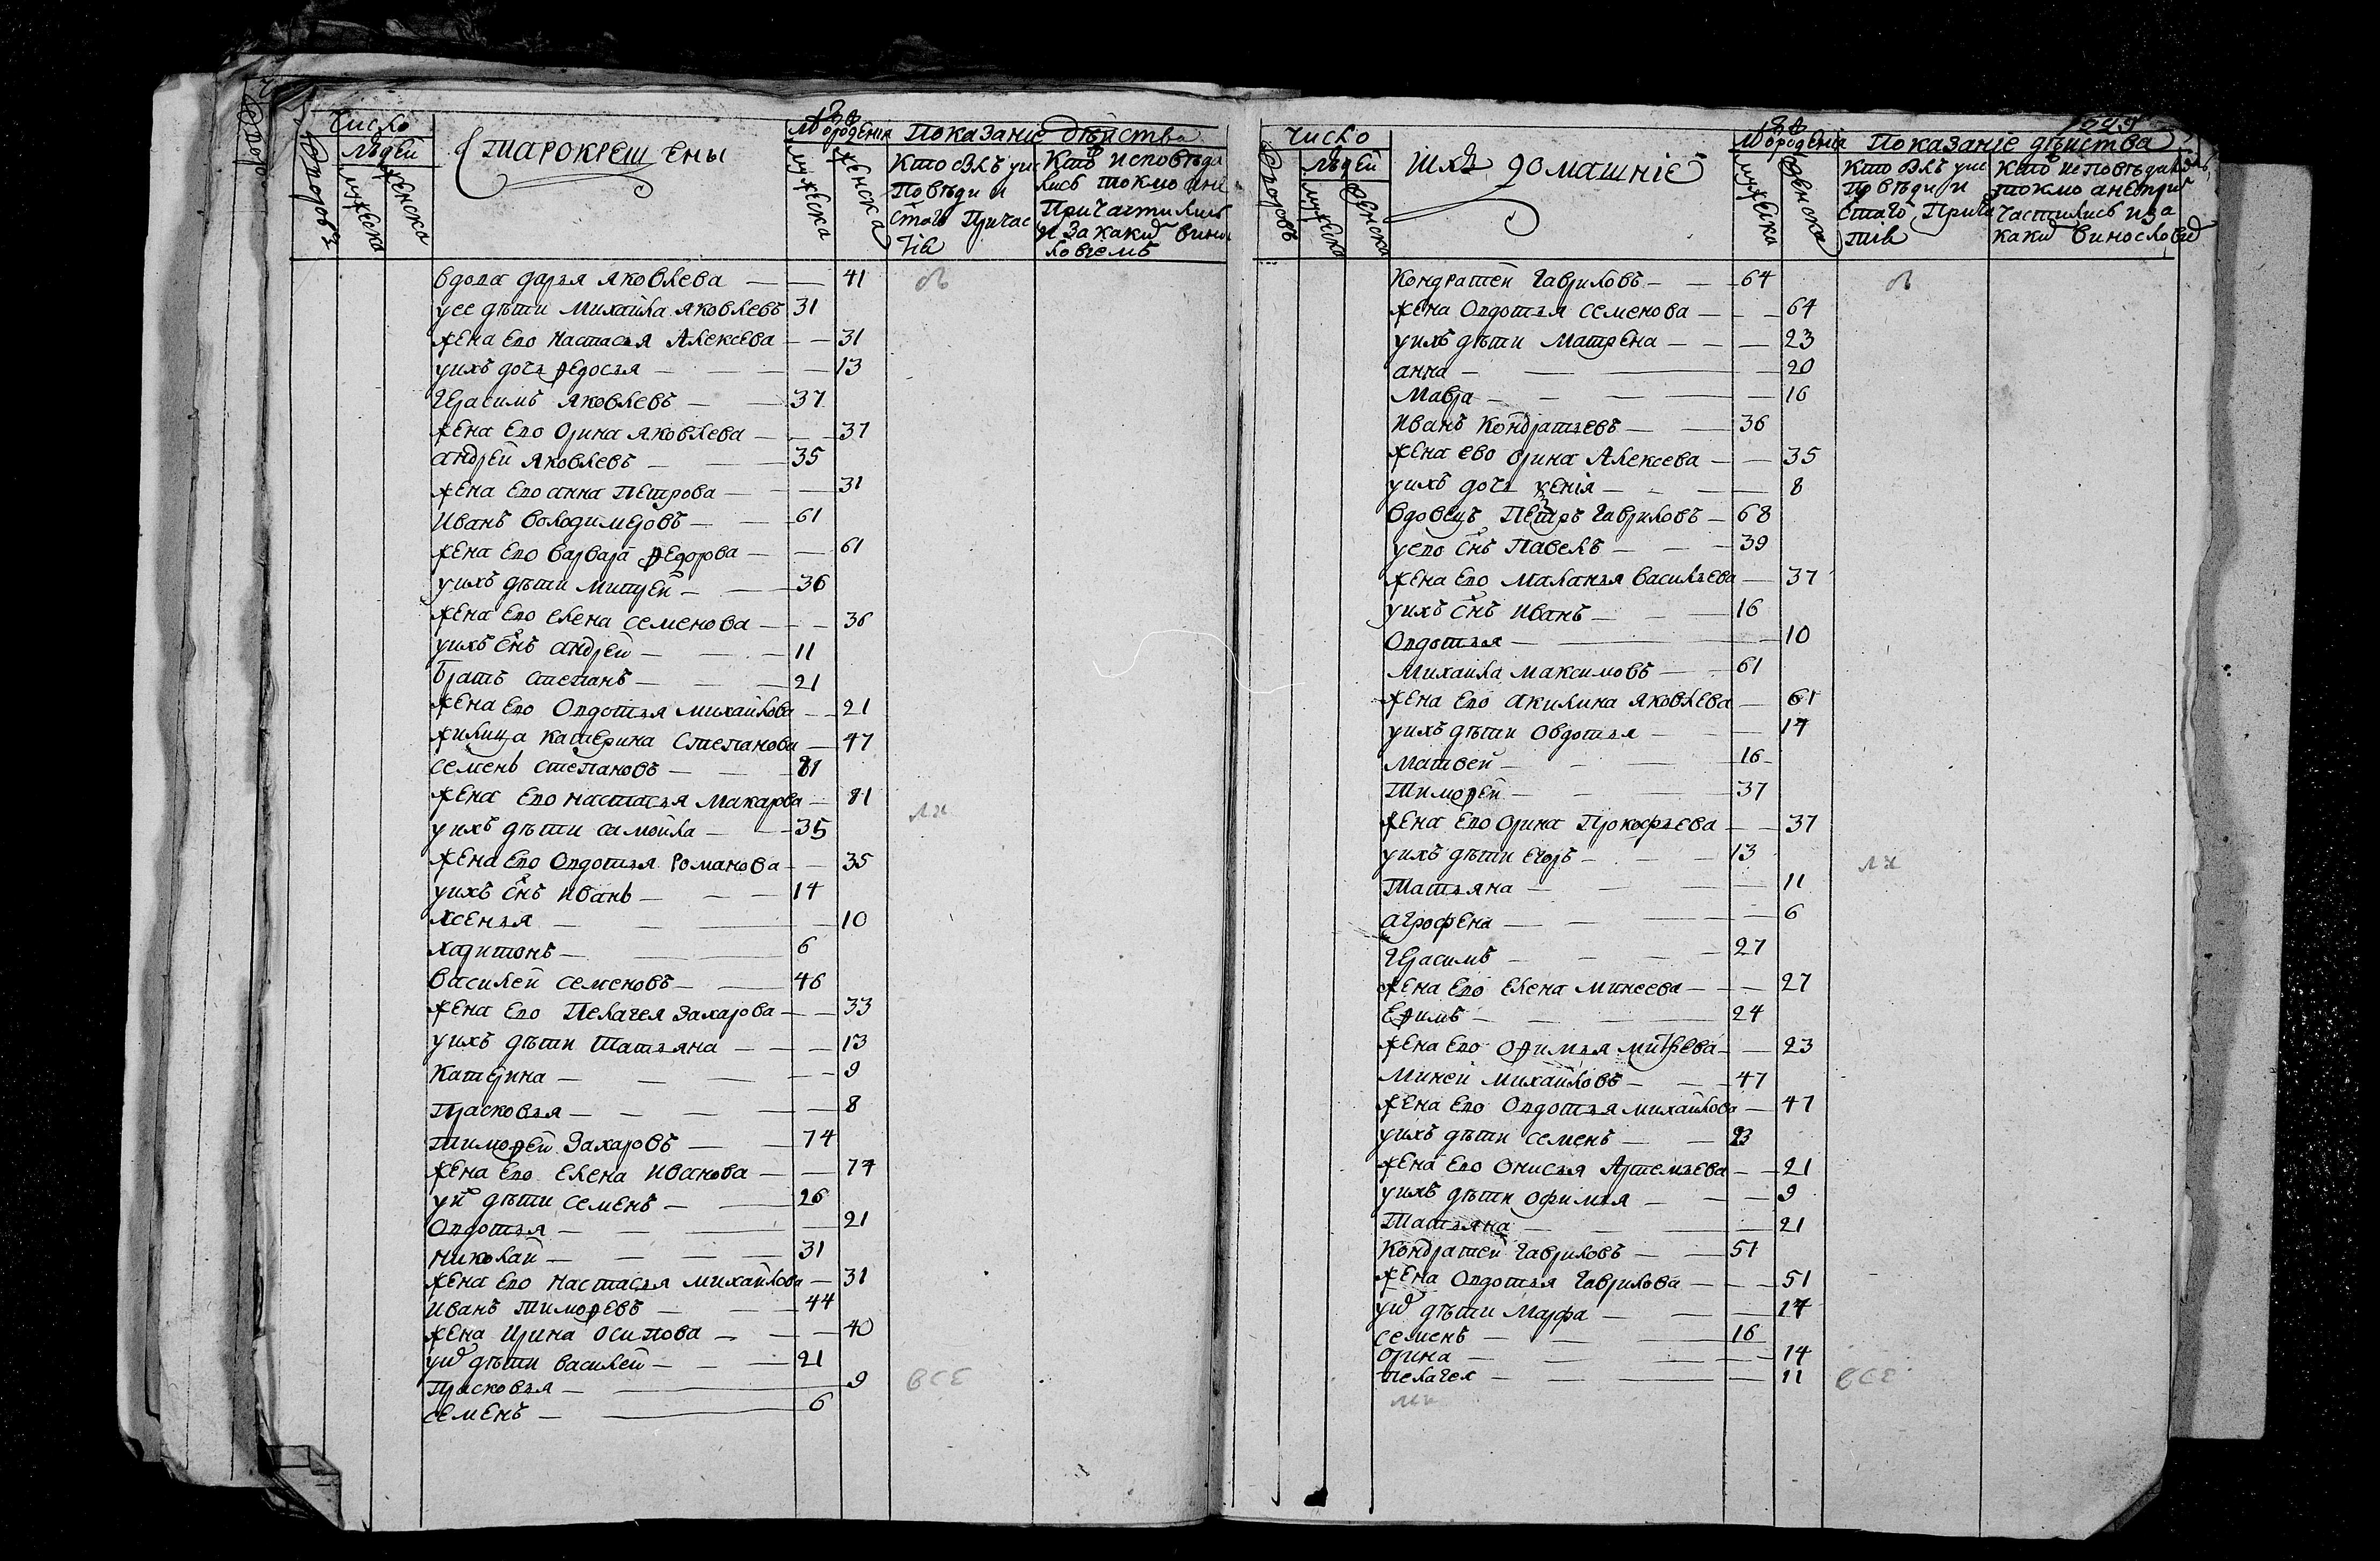 Число
людей
дворовъ
мужеска
женска
Старокрещены
ѿ рожденія
мужеска
женска
Показаніе дѣйства
Кто былъ у ис
повѣди и
стаго Причас
тія
Кто исповѣда
лись токмо а не
Причастились
и за какид вино
ловіемъ
вдова дарья Яковлева — 41
у ее дѣти Михаила Яковлевъ 31
жена Его настасья Алексѣева — 31
у ихъ дочь Ѳедосья — 13
Герасимъ Яковлевъ — 37
жена Его Орина Яковлева — 37
андрей Яковлевъ — 35
жена Его анна Петрова — 31
Иванъ Володимеровъ — 61
жена Его варвара Ѳедорова — 61
у ихъ дѣти Митрей — 36
жена Его елена семенова — 36
у ихъ снъ андрей — 11
братъ степанъ — 21
жена Его Овдотья михайлова — 21
жилица катерина Степанова — 47
семенъ степановъ — 81
жена Его настасья Макарова — 81
у ихъ дѣти самойла — 35
жена Его Овдотья Романова — 35
у ихъ снъ Иванъ — 14
Ксенья — 10
харитонъ — 6
василей семеновъ — 46
жена Его Пелагея Захарова — 33
у ихъ дѣти Татьяна — 13
Катерина — 9
Прасковья — 8
тимоѳей Захаровъ — 74
жена Его Елена Иванова — 74
у их дѣти семенъ — 26
Овдотья — 21
николай — 31
жена Его настасья михайлова — 31
Иванъ тимоѳеевъ — 44
жена Ирина осипова — 40
у их дѣти василей — 21
Прасковья — 9
семенъ — 6
все
число
людей
дворовъ
мужеска
женска
Ихъ домашніе
ѿ рожденія
мужеска
женска
Показаніе дѣйства
Кто былъ у ис
повѣди и
стаго Прича
тія
Кто исповѣдались
токмо а не при
частились и за
какид винословід
Кондратей Гавриловъ — 64
жена Овдотья семенова — 64
у ихъ дѣти Матрена — 23
анна — 20
Мавра — 16
Иванъ Кондратьевъ — 36
жена ево Орина Алексеева — 35
у ихъ дочь ксенія — 8
вдовецъ Петръ Гавриловъ — 68
у его снъ Павелъ — 39
жена Его маланья васильева — 37
у ихъ снъ иванъ — 16
Овдотья — 10
Михаила максимовъ — 61
жена Его акилина яковлева — 61
у ихъ дѣти овдотья — 17
матвей — 16
тимоѳей — 37
жена Его Орина Прокофьева — 37
у ихъ дѣти егоръ — 13
Татьяна — 11
агрофена — 6
Герасимъ — 27
жена Его елена минеева — 27
Еѳимъ — 24
жена Его Оѳимья митрева — 23
Миней михайловъ — 47
жена Его Овдотья михайлова — 47
у ихъ дѣти семенъ — 23
жена Его Онисья Артемьева — 21
у ихъ дѣти офимья — 9
Татьяна — 21
Кондратей Гавриловъ — 51
жена Овдотья Гаврилова — 51
у их дѣти Марфа — 17
семенъ — 16
орина — 14
пелагея — 11
все